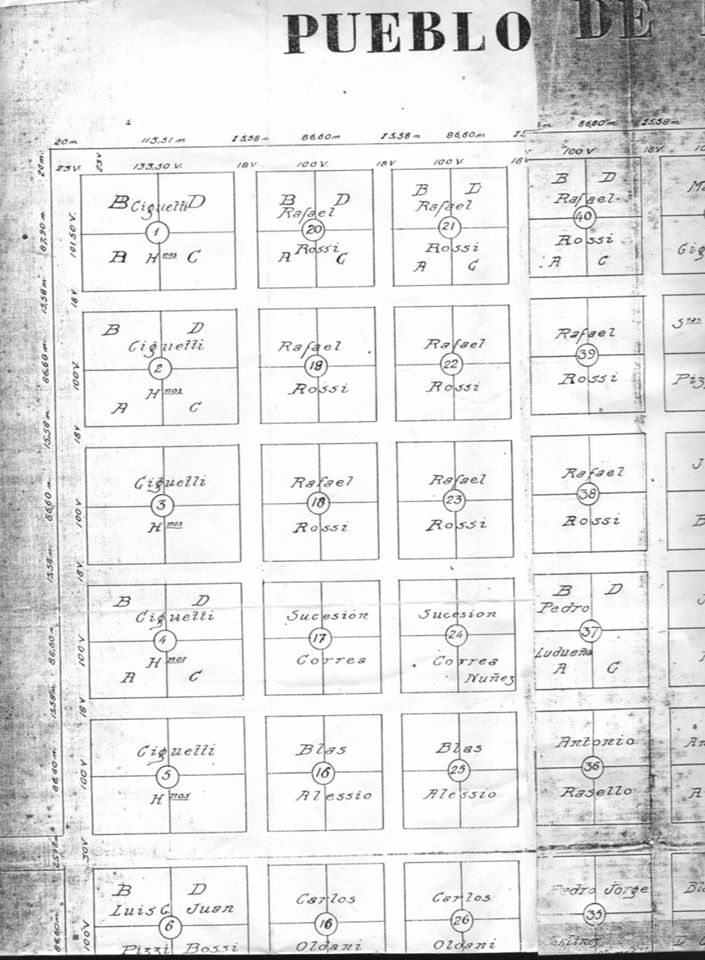 PUEBLO DE
20m. 115,51 m 15,58 m 86,60 m 15,58 m 86,60 m. 86,60 m 15,58 m
23V. 23V 133,50 V. 18V 100 V. 18V 100 V. 18V 100 V 18V
20 m.
B Ciguelli D
1
A H nos C
B D
Rafael
20
Rossi
A C
B D
Rafael
21
Rossi
A C
B D
Rafael
40
Rossi
A C
Gig
87,90 m. 101,50 V.
15,58 m. 18V
B D
Ciguelli
2
H nos
A C
Rafael
19
Rossi
Rafael
22
Rossi
Rafael
39
Rossi
S
Piz
86,60 m. 100V.
15,58 m. 18V
Ciguelli
3
H nos
Rafael
18
Rossi
Rafael
23
Rossi
Rafael
38
Rossi
J
B
86,60 m 100 V
15,58 m. 18V.
B D
Ciguelli
4
H nos
A C
Sucesión
17
Correa
Sucesion
24
Correa
Nuñez
B D
Pedro
37
Ludueña
A C
86,60 m 100V
15,58m. 18V
Ciguelli
5
H nos
Blas
16
Alessio
Blas
25
Alessio
Antonio
36
Rasello
An
A
86,60 m. 100 V
30V
B D
Luis C. Juan
6
Pizzi Bossi
Carlos
16
Oldani
Carlos
26
Oldani
Pedro Jorge
35
Bl
86,60m. 100V